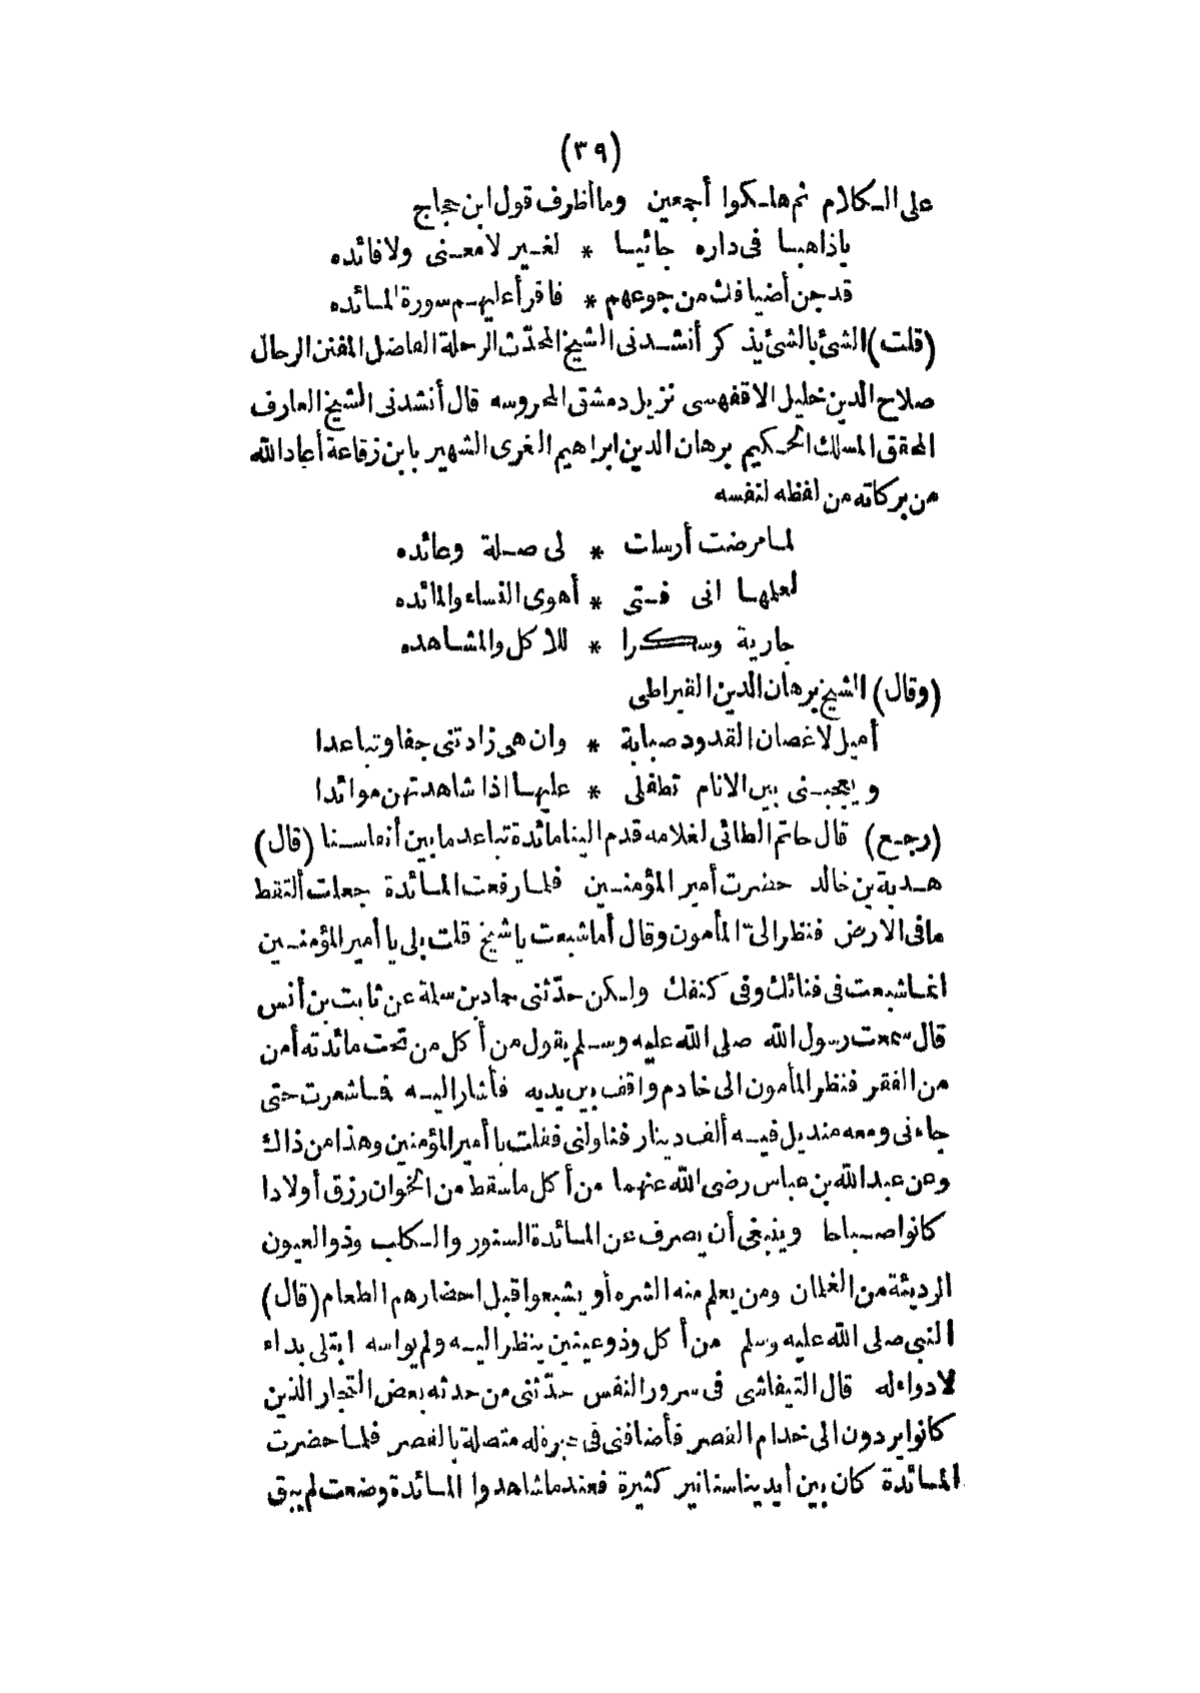 (٣٩)
على الكلام ثم هلكوا أجمعين وما أظرف قول ابن حجاج
ياذاهبا فى داره جائيا * لغير لا معنى ولا فائده
قد جن أضيافك من جوعهم * فاقرأ عليهم سورة المائده
(قلت) الشئ بالشئ يذكر أنشدنى الشيخ المحدّث الرحلة الفاضل المفنن الرحال
صلاح الدين خليل الاقفهسى نزيل دمشق المحروسه قال أنشدنى الشيخ العارف
المحقق المسلك الحكيم برهان الدين ابراهيم الغزى الشهير بابن زقاعة أعاد الله
من بركاته من لفظه لنفسه
لما مرضت أرسلت * لى صلة وعائده
لعلمها انى فتى * أهوى النساء والمائده
جارية وسكرا * للاكل والمشاهده
(وقال) الشيخ برهان الدين القيراطى
أميل لاغصان القدود صبابة * وان هى زادتنى جفا وتباعدا
ويعجبنى بين الانام تطفلى * عليها اذا شاهدتهن موائدا
(رجع) قال حاتم الطائى لغلامه قدم الينا مائدة تباعد ما بين أنفاسنا (قال)
هدبة بن خالد حضرت أمير المؤمنين فلما رفعت المائدة جعلت ألتقط
مافى الارض فنظر الىّ المأمون وقال أماشبعت ياشيخ قلت بلى يا أمير المؤمنين
انما شبعت فى فنائك وفى كنفك ولكن حدّثنى حماد بن سلمة عن ثابت بن أنس
قال سمعت رسول الله صلى الله عليه وسلم يقول من أكل من تحت مائدته أمن
من الفقر فنظر المأمون الى خادم واقف بين يديه فأشار اليه فما شعرت حتى
جاءنى ومعه منديل فيه ألف دينار فناولنى فقلت يا أمير المؤمنين وهذا من ذاك
وعن عبد الله بن عباس رضى الله عنهما من أكل ماسقط من الخوان رزق أولادا
كانوا صباحا وينبغى أن يصرف عن المائدة السنور والكلب وذو العيون
الرديئة من الغلمان ومن يعلم منه الشره أو يشبعوا قبل احضارهم الطعام (قال)
النبى صلى الله عليه وسلم من أكل وذو عينين ينظر اليه ولم يواسه ابتلى بداء
لادواءله قال التيفاشى فى سرور النفس حدّثنى من حدثه بعض التجار الذين
كانوا يردون الى خدام القصر فأضافنى فى حجرة له متصلة بالقصر فلما حضرت
المائدة كان بين أيدينا سنانير كثيرة فعند ماشاهدوا المائدة وضعت لم يبق